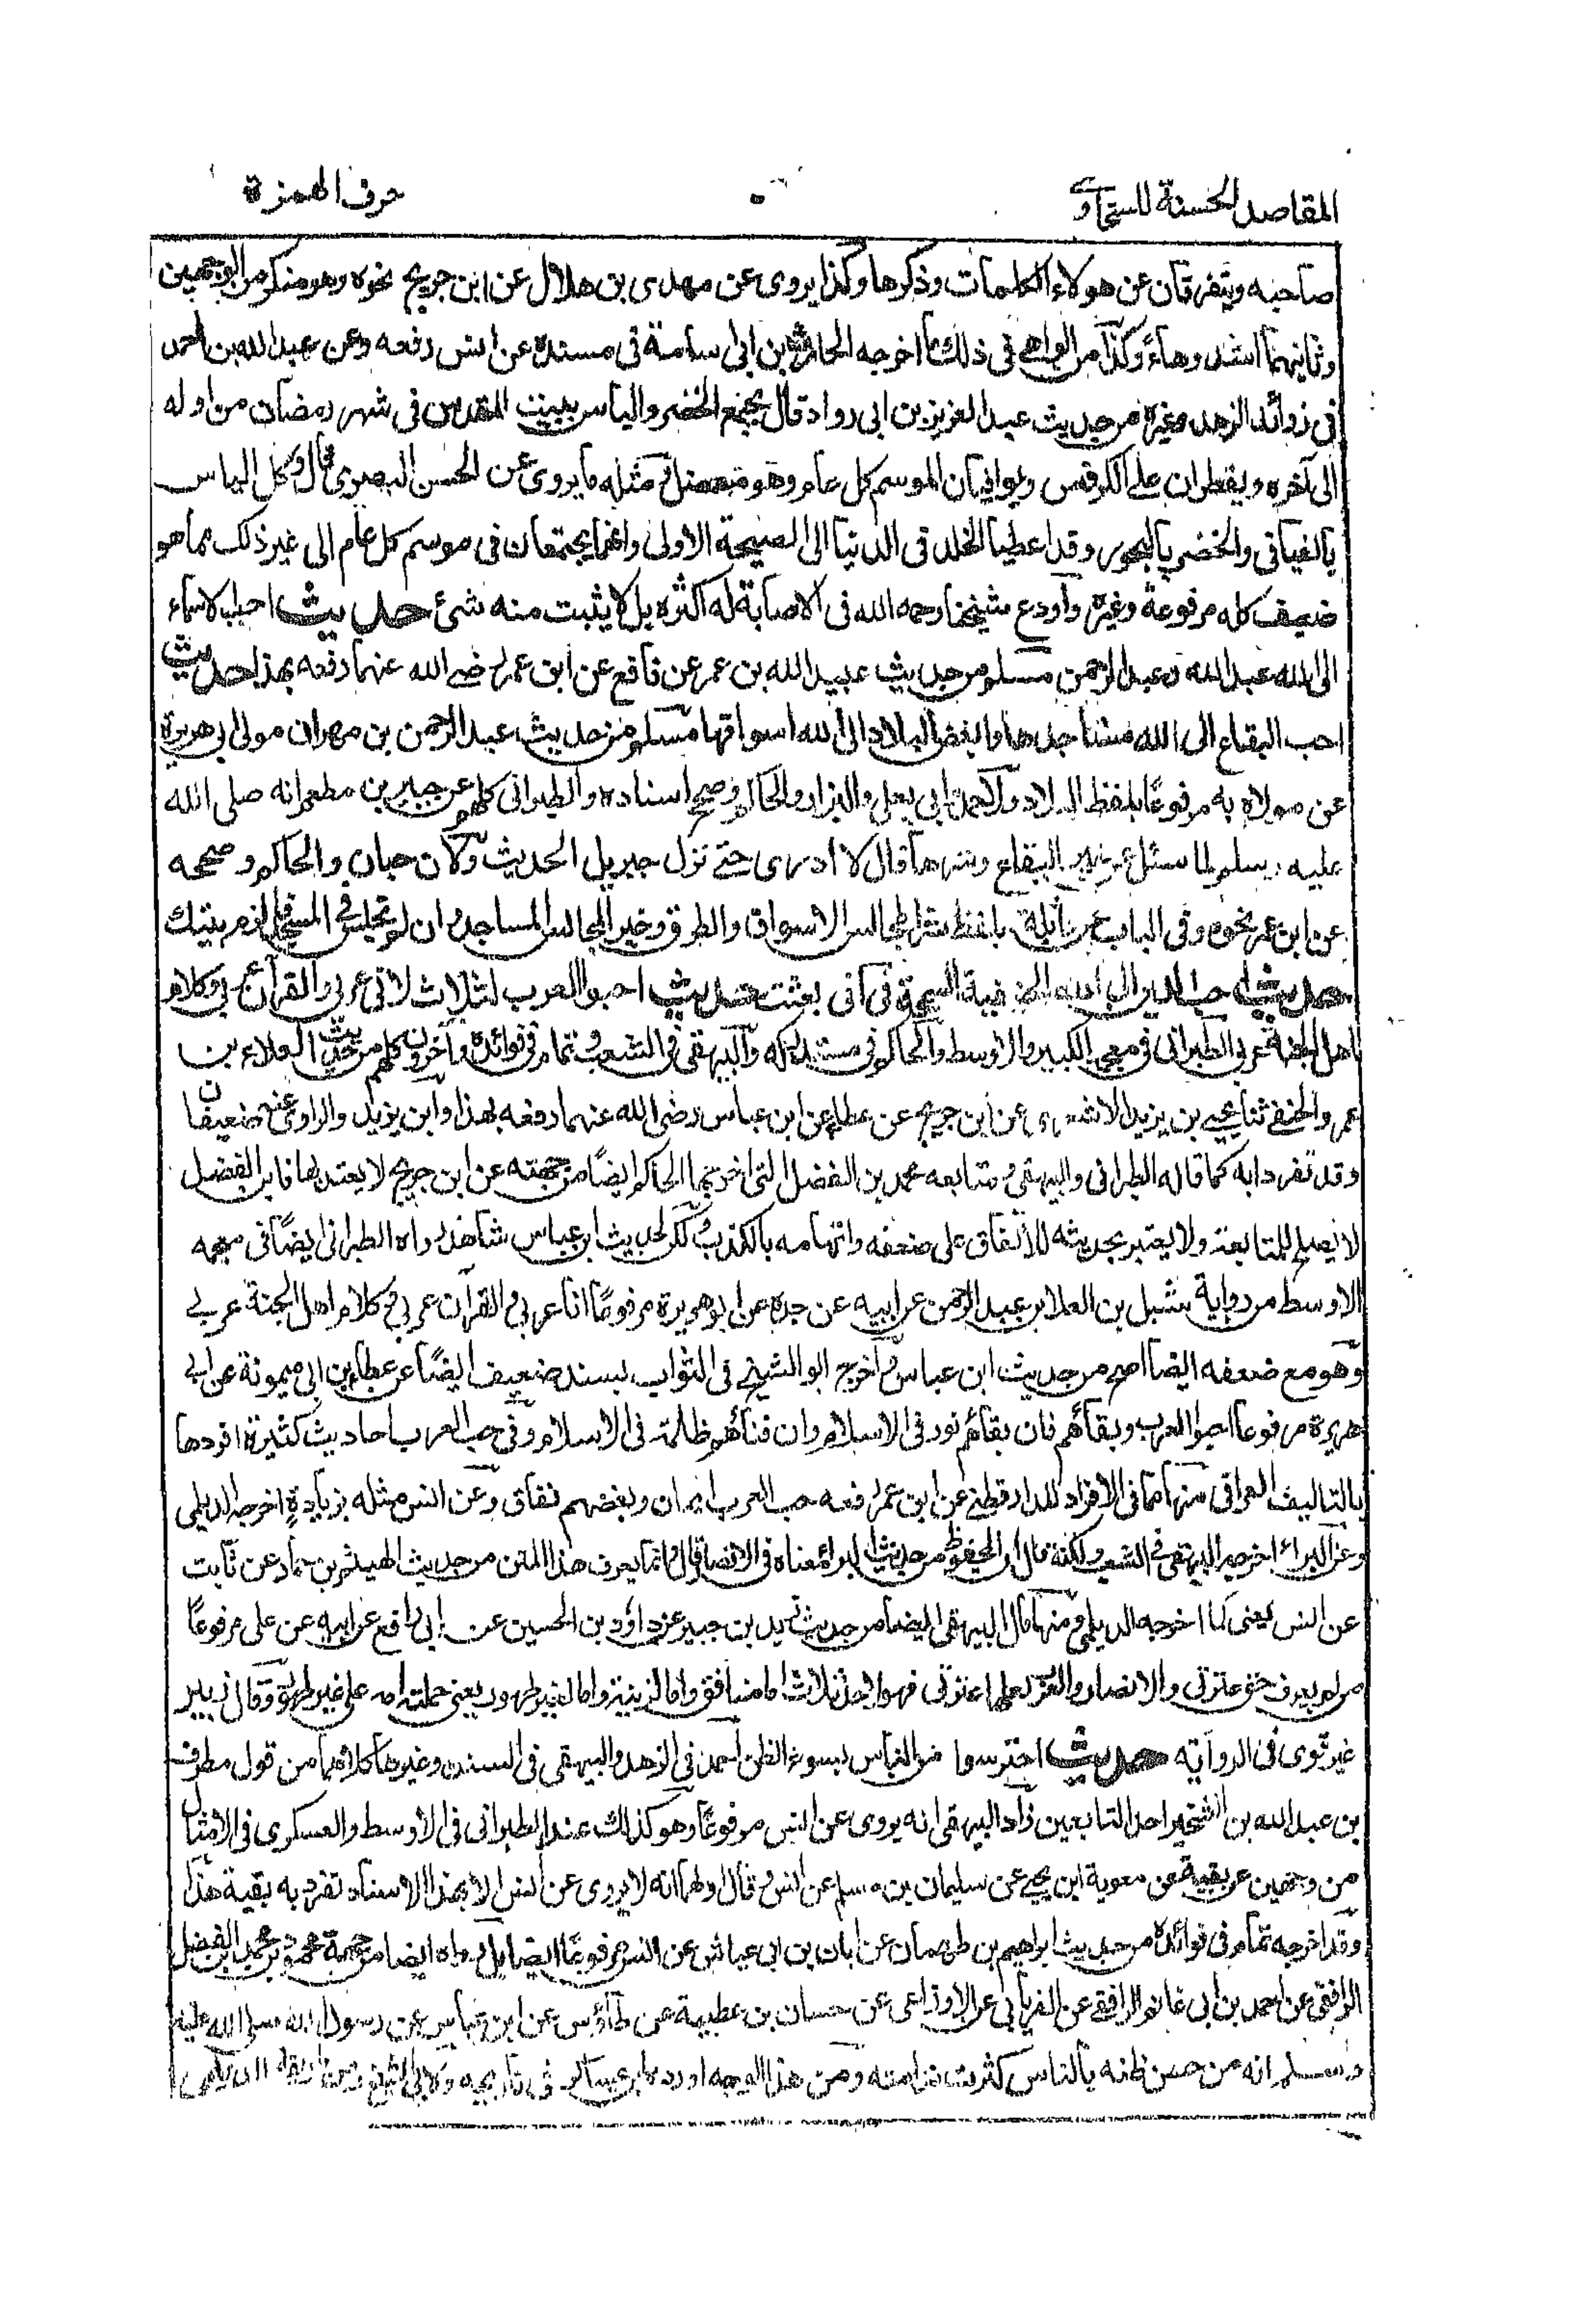 المقاصد الحسنة للسخاوى
حرف الهمزة
صاحبه ويتفرقان عن هولاء الكلمات وذكرها وكذا يروى عن مهدى بن هلال عن ابن جريج نحوه وهو منكر من الوجهين
وثانيهما اشد وهاءً وكذا من الواهى فى ذلك ما اخرجه الحارث بن ابى اسامة فى مسنده عن انس رفعه وعن عبد الله بن احمد
فى زوائد الزهد وغيره من حديث عبد العزيز بن ابى رواد قال يجتمع الخضر والياس ببيت المقدس فى شهر رمضان من اوله
الى آخره ويفطران على الكرفس ويوافيان الموسم كل عام وهو معضل ومثله ما يروى عن الحسن البصرى قال وكل الياس
بالفيافى والخضر بالبحور وقد اعطيا الخلد فى الدنيا الى الصيحة الاولى وانهما يجتمعان فى موسم كل عام الى غير ذلك مما هو
ضعيف كله مرفوعة وغيره وأودع شيخنا رحمه الله فى الاصابة له اكثره بل لا يثبت منه شئ حديث احب الاسماء
الى الله عبد الله وعبد الرحمن مسلم من حديث عبيد الله بن عمر عن نافع عن ابن عمر رضى الله عنهما رفعه بهذا حديث
احب البقاع الى الله مساجدها وابغض البلاد الى الله اسواقها مسلم من حديث عبد الرحمن بن مهران مولى ابى هريرة
عن مولاه به مرفوعًا بلفظ البلاد ولاحمد وابى يعلى والبزار والحاكم وصحح اسناده والطبرانى كلهم عن جبير بن مطعم انه صلى الله
عليه وسلم لما سئل عن خير البقاع وشرها قال لا ادرى حتى نزل جبريل الحديث ولابن حبان والحاكم وصححه
عن ابن عمر نحوه وفى الباب عن واثلة بلفظ شر المجالس الاسواق والطرق وخير المجالس المساجد وان لم تجلس فى المسجد فالزم بيتك
حديث احب الدين الى الله الحنيفية السمحة فى انى بعثت حديث احبوا العرب لثلاث لانى عربى والقرآن عربى وكلام
اهل الجنة عربى الطبرانى فى معجميه الكبير والاوسط والحاكم فى مستدركه والبيهقى فى الشعب وتمام فى فوائده وآخرون كلهم من حديث العلاء بن
عمرو الحنفى ثنا يحيى بن يزيد الاشعرى عن ابن جريج عن عطاء عن ابن عباس رضى الله عنهما رفعه بهذا وابن يزيد والراوى عنه ضعيفان
وقد تفردا به كما قاله الطبرانى والبيهقى ومتابعه محمد بن الفضل التى اخرجها الحاكم ايضًا من جهته عن ابن جريج لا يعتد بها فابن الفضل
لا يصلح للمتابعة ولا يعتبر بحديثه للاتفاق على ضعفه واتهامه بالكذب ولكن لحديث ابن عباس شاهد رواه الطبرانى ايضًا فى معجمه
الاوسط من رواية شبل بن العلا بن عبد الرحمن عن ابيه عن جده عن ابو هريرة مرفوعًا انا عربى والقرآن عربى وكلام اهل الجنة عربى
وهو مع ضعفه ايضا اصح من حديث ابن عباس واخرج ابو الشيخ فى الثواب بسند ضعيف ايضًا عن عطاء بن ابى ميمونة عن ابى
هريرة مرفوعا احبوا العرب وبقاءهم فان بقاءهم نور فى الاسلام وان فناءهم ظلمة فى الاسلام وفى حب العرب احاديث كثيرة افردها
بالتاليف العراقى منها ما فى الافراد للدارقطنى عن ابن عمر رفعه حب العرب ايمان وبغضهم نفاق وعن انس مثله بزيادةٍ اخرجه الديلمى
وعن البراء اخرجه البيهقى فى الشعب ولكنه قال ان المحفوظ من حديث البراء معناه فى الانصار قال وانما يعرف هذا المتن من حديث الهيثم بن جماد عن ثابت
عن انس يعنى كما اخرجه الديلمى ومنها قال البيهقى ايضا من حديث زيد بن جبير عن داؤد بن الحسين عن ابى رافع عن ابيه عن على مرفوعًا
من لم يعرف حق عترتى والانصار والعرب فهو لاحد ثلاث اما منافق واما لزينية واما لغير طهور يعنى حملته امه على غير طهر وقال زيد
غير قوى فى الرواية حديث احترسوا من الناس بسوء الظن احمد فى الزهد والبيهقى فى السنن وغيرها كلاهما من قول مطرف
بن عبد الله بن الشخير احد التابعين زاد البيهقى انه يروى عن انس مرفوعًا وهو كذلك عند الطبرانى فى الاوسط والعسكرى فى الامثال
من وجهين عن بقية عن معوية ابن يحيى عن سليمان بن مسلم عن انس وقال اولهما انه لا يروى عن انس الا بهذا الاسناد تفرد به بقية هذا
وقد اخرجه تمام فى فوائده من حديث ابراهيم بن طهمان عن ابان بن ابى عياش عن انس مرفوعًا ايضا بل رواه ايضا من جهة محمود بن محمد بن الفضل
الرافقى عن احمد بن ابى غانم الرافقى عن الفريابى عن الاوزاعى عن حسان بن عطية عن طاؤس عن ابن عباس عن رسول الله صلى الله عليه
وسلم انه من حسن ظنه بالناس كثرت ندامته ومن هذا الوجه اورده ابن عساكر فى تاريخه ولابى الشيخ ومن طريقه الديلمى